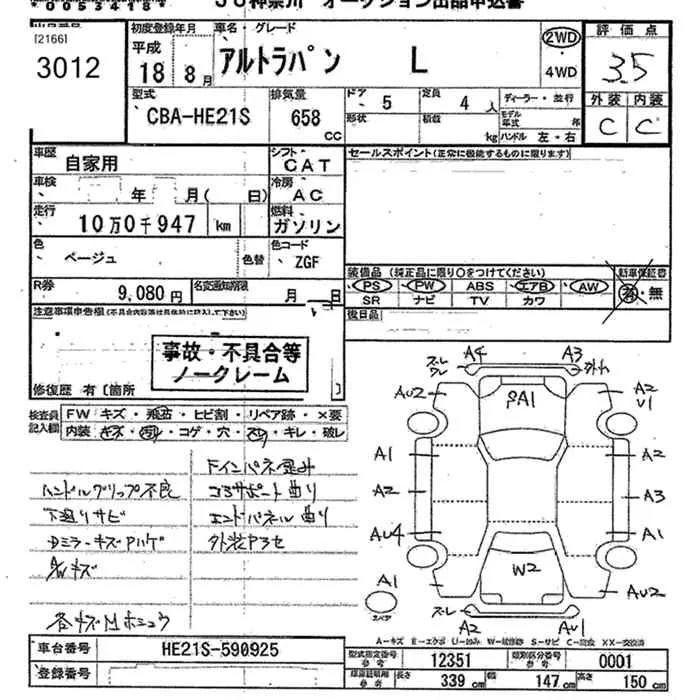 *0055418*
JU神奈川 オークション出品申込書
[2166]
3012
初度登録年月
平成
18 8月
車名・グレード
アルトラパン L
2WD
・
4WD
評価点
3.5
外装 内装
C C
型式
CBA-HE21S
排気量
658
CC
ドア
5
定員
4人
ディーラー・並行
形状
積載
kg
モデル年式
年
ハンドル 左・右
車歴
自家用
シフト
CAT
セールスポイント(正常に機能するものに限ります)
車検
年 月( 日)
冷房
AC
走行
10万0千947 km
燃料
ガソリン
色
ベージュ
色替
色コード
ZGF
R券
9,080円
名変通知期限
月 日
装備品(純正品に限り○をつけてください)
PS PW ABS エアB AW
SR ナビ TV カワ
新車保証書
有・無
後日品
注意事項申告欄(不具合内容等は具体的に記入して下さい)
事故・不具合等
ノークレーム
修復歴 有〔箇所 〕
検査員記入欄
FW キズ・飛石・ヒビ割・リペア跡・×要
内装・キズ・汚れ・コゲ・穴・スレ・キレ・破レ
ハンドルグリップ不良
下廻りサビ
Dミラーキズ PハゲA
AWキズ
各キズ M ホシュウ
Fインパネ歪み
コアサポート曲り
エンドパネル曲り
外装アセ
ズレ
ワレ
A4 A3 外れ
AU2 PA1 A2
U1
A1 A2
A2 A3
AU4 A1
W2
A1 AU2
スペア
ズレ
A2 AU1
A-キズ E-エクボ U-凹み W-補修跡 S-サビ C-腐食 XX-交換済
車台番号
HE21S-590925
登録番号
型式指定番号
参考
12351
類別区分番号
参考
0001
車庫証明用
参考
長さ 339 cm 幅 147 cm 高さ 150 cm